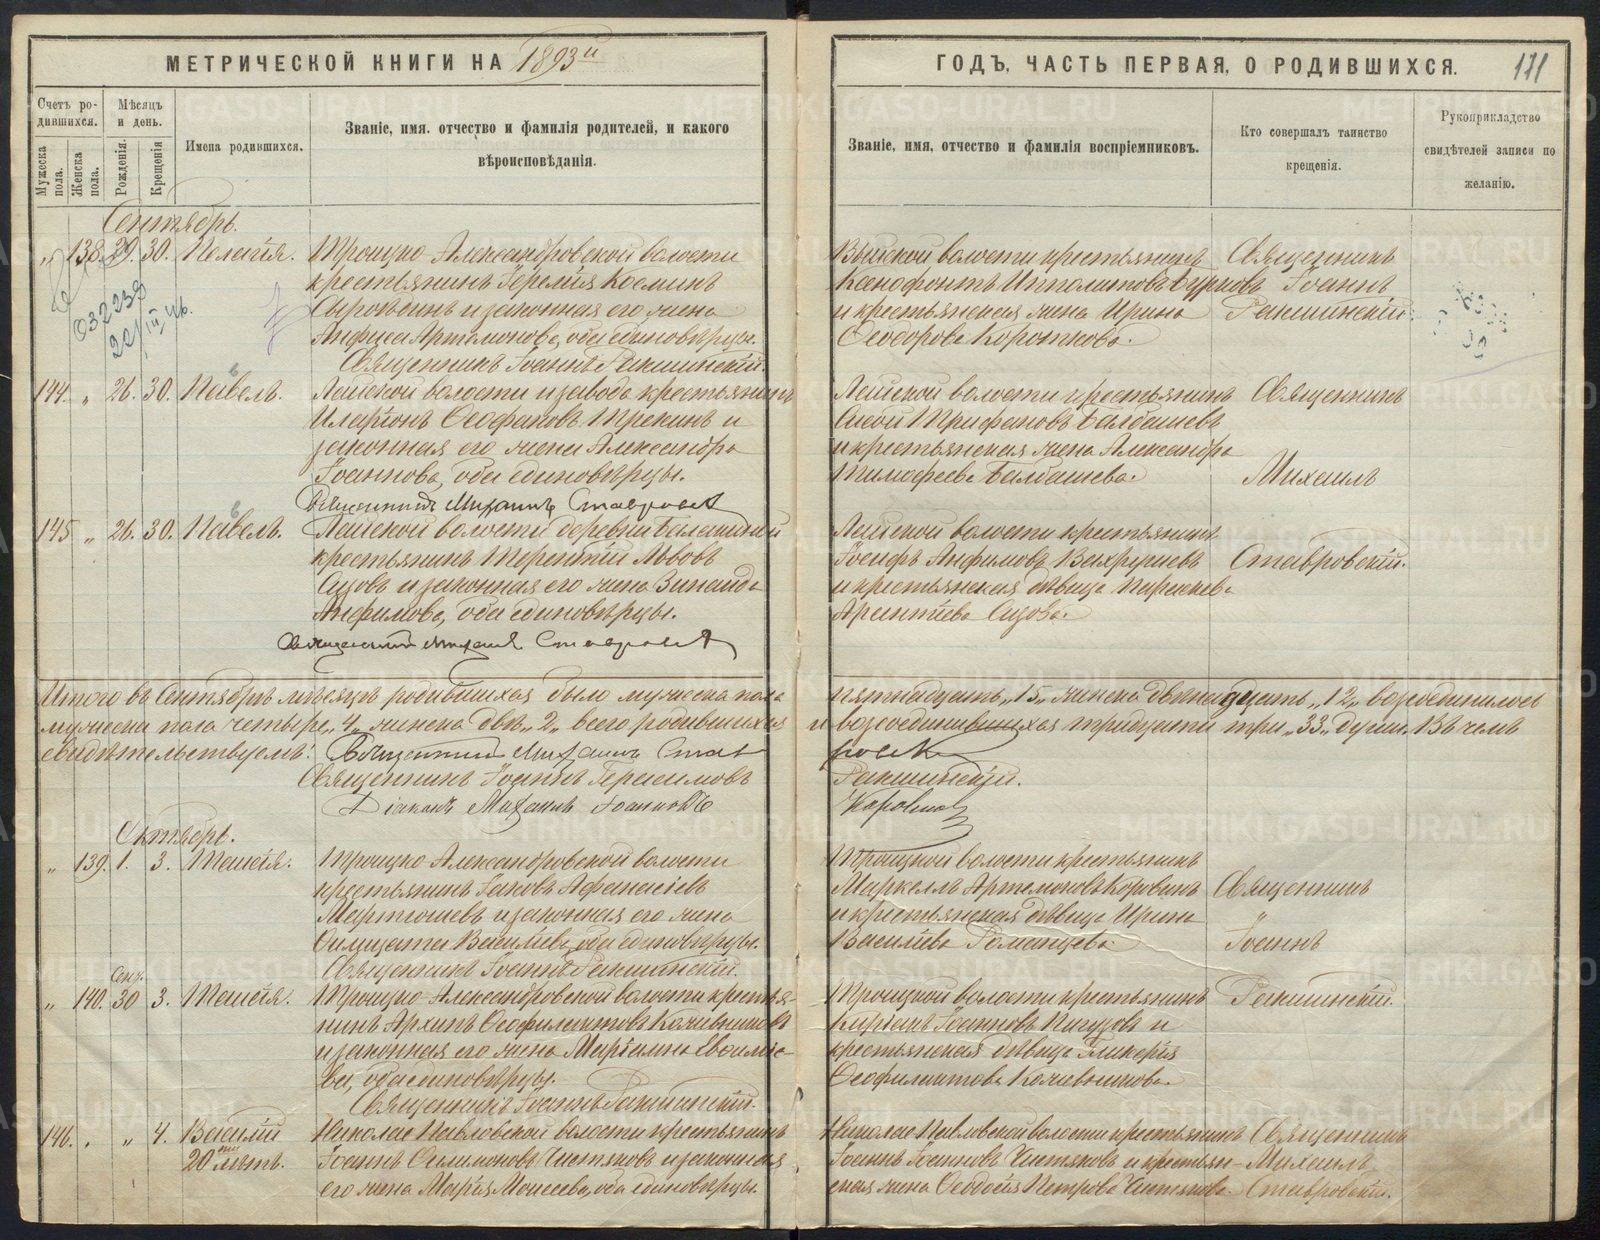 МЕТРИЧЕСКОЙ КНИГИ НА 1893й
ГОДЪ, ЧАСТЬ ПЕРВАЯ, О РОДИВШИХСЯ.
171
Счетъ родившихся.
Мужеска пола.
Женска пола.
Мѣсяцъ и день.
Рожденія.
Крещенія
Имена родившихся.
Званіе, имя. отчество и фамилія родителей, и какого
вѣроисповѣданія.
Званіе, имя, отчество и фамилія воспріемниковъ.
Кто совершалъ таинство
крещенія.
Рукоприкладство
свидѣтелей записи по
желанію.
Сентябрь.
„ 138. 29. 30. Пелагія.
Троицко Александровской волости
крестьянинъ Іеремія Косминъ
и законная его жена
Анфиса Артемонова, оба единовѣрцы.
Священникъ Іоаннъ Ракшинскій.
Выйской волости крестьянинъ
Ксенофонтъ Ипполитовъ Бурковъ
и крестьянская жена Ирина
Ѳеодорова Короткова.
Священникъ
Іоаннъ
Ракшинскій.
032239
22/III 46.
144. „ 26. 30. Павелъ.
Лайской волости и завода крестьянинъ
Иларіонъ Ѳеофановъ Трекинъ и
законная его жена Александра
Іоаннова, оба единовѣрцы.
Священникъ Михаилъ Ставровскій
Лайской волости крестьянинъ
Трифановъ Балдашевъ
и крестьянская жена Александра
Тимофеева Балдашева.
Священникъ
Михаилъ
145 „ 26. 30. Павелъ.
Лайской волости деревни Балакиной
крестьянинъ Терентій Львовъ
и законная его жена Зинаида
Анфимова, оба единовѣрцы.
Священникъ Михаилъ Ставровскій
Лайской волости крестьянинъ
Іосифъ Анфимовъ Вахрушевъ
и крестьянская дѣвица Параскева
Ставровскій.
Итого въ Сентябрѣ мѣсяцѣ родившихся было мужеска пола
пятнадцать „15„ женска двенадцать „12„ возсоединилось
мужеска пола четыре „4„ женска двѣ „2„ всего родившихся
и возсоединившихся тридцати три „33„ души. Въ чемъ
свидѣтельствуемъ: Священникъ Михаилъ Став
ровскій
Священникъ Іоаннъ Герасимовъ
Ракшинскій.
Діаконъ Михаилъ Іоанновъ
Октябрь.
„ 139. 1. 3. Таисія.
Троицко Александровской волости
крестьянинъ Іаковъ Афанасіевъ
Мартюшевъ и законная его жена
Васильева, оба единовѣрцы.
Священникъ Іоаннъ Ракшинскій.
Троицкой волости крестьянинъ
Маркеллъ Артемоновъ Коровинъ
и крестьянская дѣвица Ирина
Василіева Романцева.
Священникъ
Іоаннъ
Сент.
„ 140. 30 3. Таисія.
Троицко Александровской волости крестья-
нинъ Архипъ Ѳеофилактовъ Кожевниковъ
и законная его жена Маріамна Евсиміе-
ва, оба единовѣрцы.
Священникъ Іоаннъ Ракшинскій.
Троицкой волости крестьянинъ
Іоанновъ Пигузовъ и
крестьянская дѣвица Гликерія
Ѳеофилактова Кожевникова.
Ракшинскій.
146. „ „ 4. Василій
20 лѣтъ.
Николае Павловской волости крестьянинъ
Іоаннъ Филимоновъ Чистяковъ и законная
его жена Марія Моисеева, оба единовѣрцы.
Николае Павловской волости крестьянинъ
Іоаннъ Іоанновъ Чистяковъ и крестьян-
ская жена Ѳеодосія Петрова Чистякова.
Священникъ
Михаилъ
Ставровскій.
METRIKI.GASO-URAL.RU